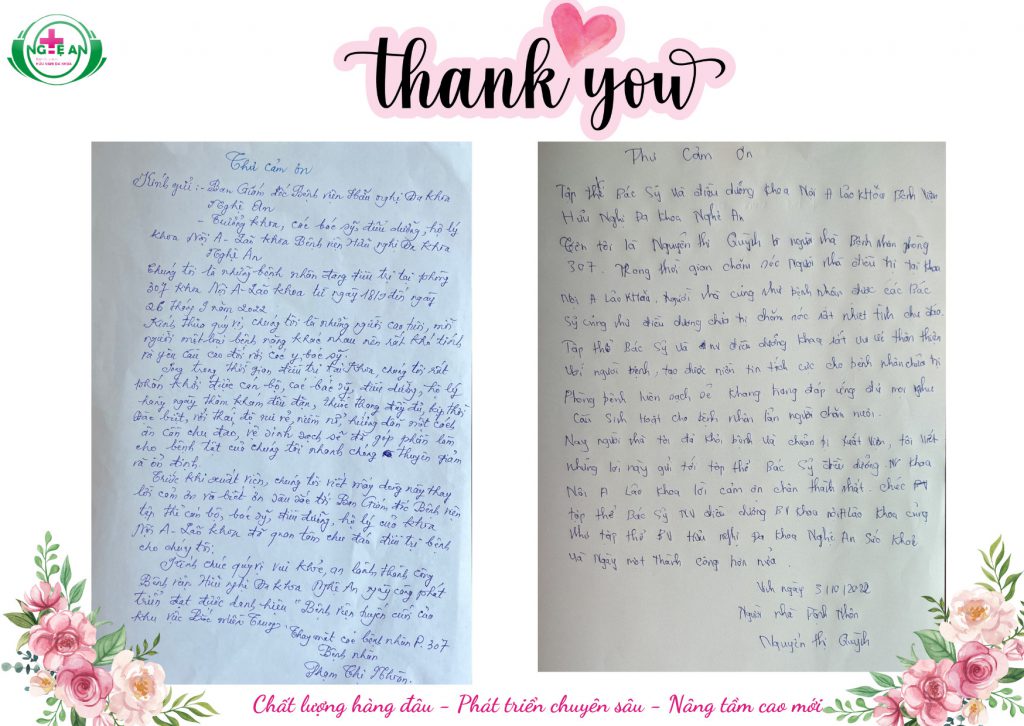 NGHỆ AN
thank you
Thư cảm ơn
Kính gửi: - Ban Giám đốc Bệnh viện Hữu nghị Đa khoa
Nghệ An
- Trưởng khoa, các bác sỹ, điều dưỡng, hộ lý
khoa Nội A - Lão khoa Bệnh viện Hữu nghị Đa khoa
Nghệ An
Chúng tôi là những bệnh nhân đang điều trị tại phòng
307 khoa Nội A - Lão khoa từ ngày 18/9 đến ngày
26 tháng 9 năm 2022
Kính thưa quý vị, chúng tôi là những người cao tuổi, mỗi
người một loại bệnh nặng khác nhau nên rất khó tính
và yêu cầu cao đối với các y, bác sỹ.
Song trong thời gian điều trị tại khoa, chúng tôi rất
phấn khởi được cán bộ, các bác sỹ, điều dưỡng, hộ lý
hàng ngày thăm khám đều đặn, thuốc thang đầy đủ, kịp thời
đặc biệt, với thái độ vui vẻ, niềm nở, hướng dẫn một cách
ân cần chu đáo, vệ sinh sạch sẽ đã góp phần làm
cho bệnh tật của chúng tôi nhanh chóng thuyên giảm
và ổn định.
Trước khi xuất viện, chúng tôi viết mấy dòng này thay
lời cảm ơn và biết ơn sâu sắc tới Ban Giám đốc Bệnh viện
tập thể cán bộ, bác sỹ, điều dưỡng, hộ lý của khoa
Nội A - Lão khoa đã quan tâm chu đáo điều trị bệnh
cho chúng tôi.
Kính chúc quý vị vui khoẻ, an lành, thành công
Bệnh viện Hữu nghị Đa khoa Nghệ An ngày càng phát
triển đạt được danh hiệu "Bệnh viện tuyến cuối của
khu vực Bắc miền Trung"
Thay mặt các bệnh nhân P. 307
Bệnh nhân
Phạm Thị Nhàn.
Thư Cảm Ơn
Tập thể Bác Sỹ và điều dưỡng Khoa Nội A Lão khoa Bệnh Viện
Hữu Nghị Đa Khoa Nghệ An
Tên tôi là Nguyễn Thị Quỳnh là người nhà Bệnh nhân phòng
307. Trong thời gian chăm sóc Người nhà điều trị tại khoa
Nội A Lão Khoa, Người nhà cũng như bệnh nhân được các Bác
Sỹ cũng như điều dưỡng chữa trị chăm sóc rất nhiệt tình chu đáo.
Tập thể Bác Sỹ và điều dưỡng khoa rất vui vẻ thân thiện
với người bệnh, tạo được niềm tin tích cực cho bệnh nhân chữa trị
Phòng bệnh luôn sạch sẽ khang trang đáp ứng đủ mọi nhu
cầu sinh hoạt cho bệnh nhân lẫn người chăm nuôi.
Nay người nhà tôi đã khỏi bệnh và chuẩn bị xuất viện, tôi viết
những lời này gửi tới tập thể Bác Sỹ điều dưỡng NV khoa
Nội A Lão khoa lời cảm ơn chân thành nhất. chúc
tập thể Bác Sỹ NV điều dưỡng BV khoa nội A Lão Khoa cũng
Như tập thể BV hữu nghị Đa khoa Nghệ An Sức Khoẻ
và Ngày một thành công hơn nữa.
Vinh ngày 3/10/2022
Người nhà Bệnh Nhân
Nguyễn Thị Quỳnh
Chất lượng hàng đầu - Phát triển chuyên sâu - Nâng tầm cao mới